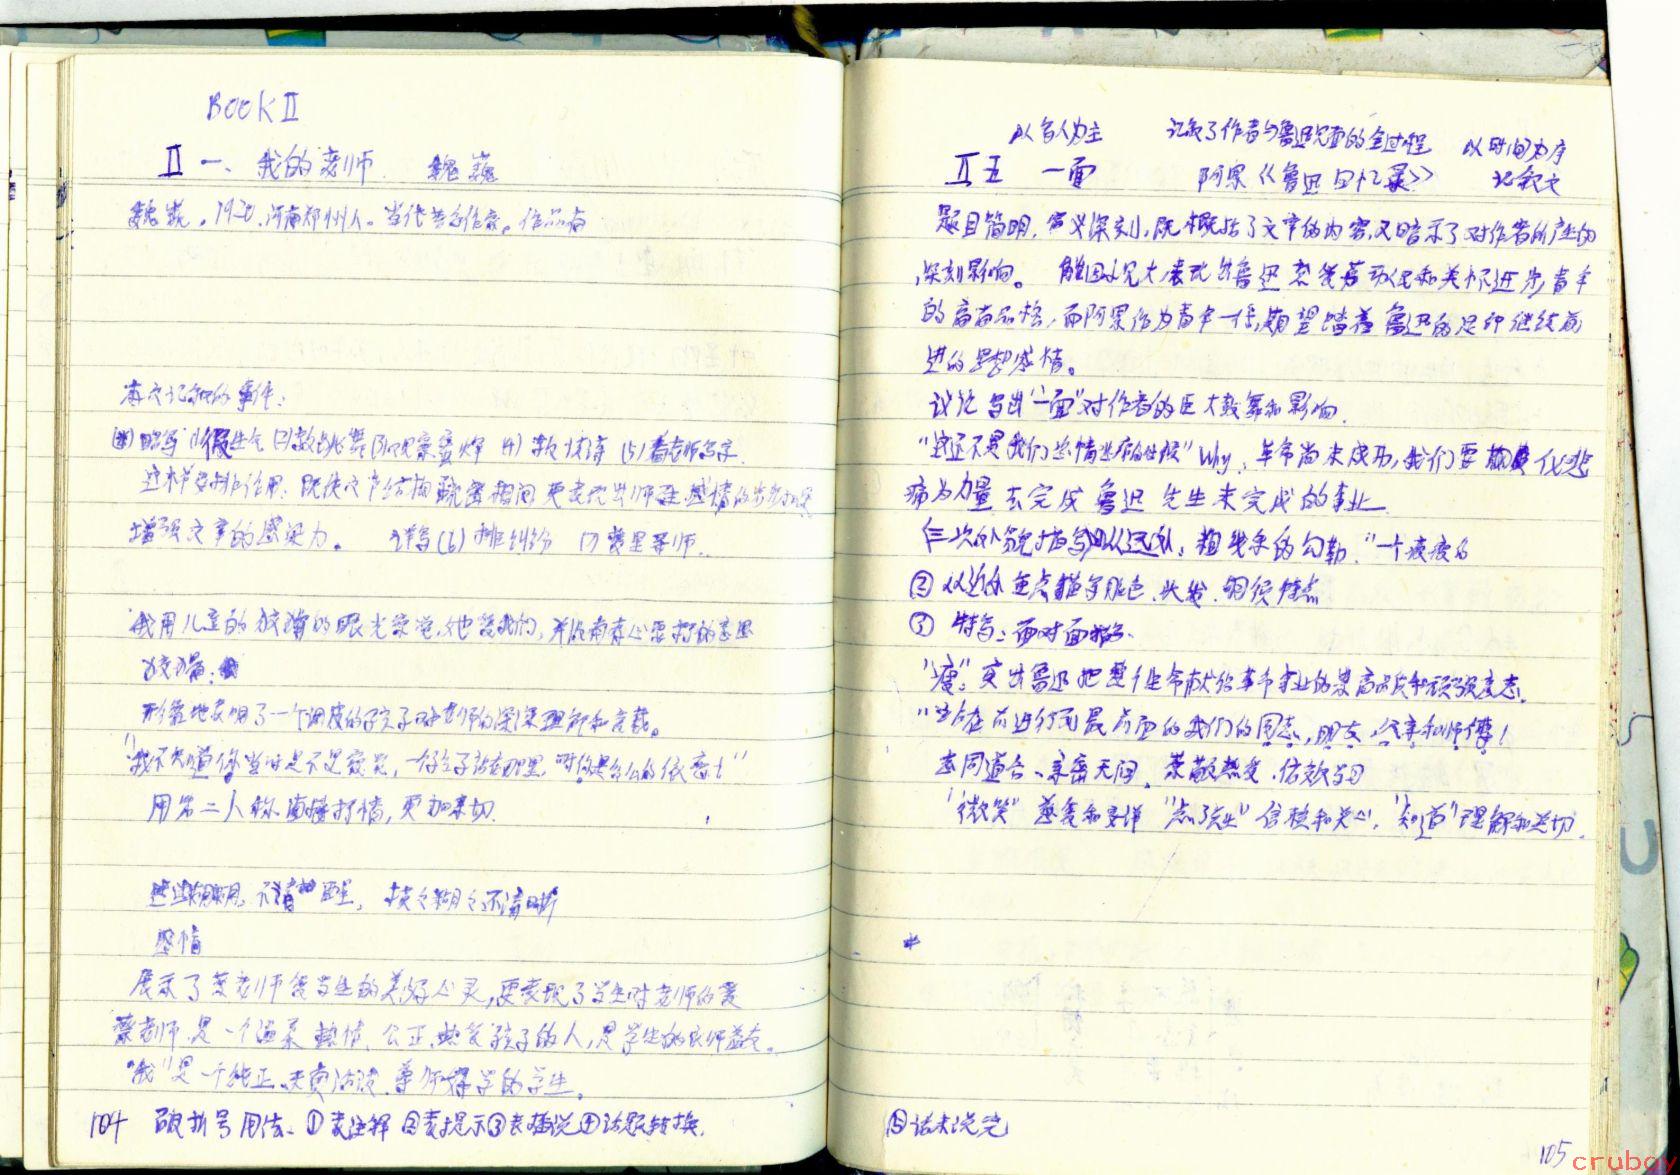 BOOK II
II 一、我的老师 魏巍
魏巍。1920.河南郑州人。当代著名作家。作品有
本文记叙的事件:
略写 (1)假生气 (2)教跳舞 (3)观察蜜蜂 (4) 教读诗 (5)看老师写字.
这样安排作用: 既使文章结构疏密相间 更表现出师生感情的
增强文章的感染力。 详写(6)排纠纷 (7)梦里寻师.
我用儿童的狡猾的眼光察觉,她爱我们,并没有存心要打的意思
狡猾:
形象地表明了一个调皮的孩子对老师的深深理解和喜爱。
"我不知道你当时是不是察觉,一个孩子站在那里,对你是多么的依恋!"
用第二人称直接抒情,更加亲切.
不清醒, 模模糊糊 不清晰
展示了蔡老师爱学生的美好心灵,更表现了学生对老师的爱
蔡老师是一个温柔 热情、公正、热爱孩子的人,是学生的良师益友。
"我"是一个纯正、天真活泼、尊师好学的学生。
104 破折号用法、①表注释 ②表提示 ③表插说 ④话题转换.
以写人为主 记叙了作者与鲁迅见面的全过程 以时间为序
II 五 一面 阿累《鲁迅回忆录》 记叙文
题目简明,含义深刻,既概括了文章的内容,又暗示了对作者所产生的
深刻影响。 能因小见大,表现出鲁迅热爱劳动人民和关怀进步青年
的高尚品格,而阿累作为青年一代,期望踏着鲁迅的足印继续前
进的思想感情。
议论写出"一面"对作者的巨大鼓舞和影响.
"这还不是我们悲伤悲痛的时候" Why: 革命尚未成功,我们要 化悲
痛为力量 去完成 鲁迅 先生未完成的事业.
三次外貌描写①从远处:粗线条的勾勒."一个瘦瘦的
② 从近处 重点描写脸色、头发、胡须特点
③ 特写:面对面
"瘦":突出鲁迅把整个生命献给革命事业的崇高品质和顽强意志.
"站在前进行列最前面的我们的同志,朋友,父亲和师傅!
志同道合、亲密无间、崇敬热爱、
"微笑" 慈爱和 "点了头" 信赖和关心, "知道"理解和关切.
⑤话未说完
105
cruboy